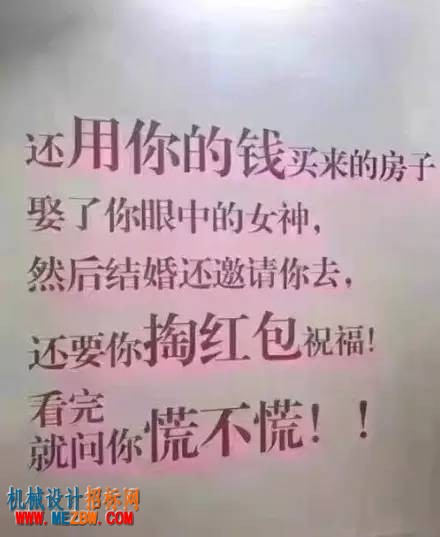 还用你的钱买来的房子
娶了你眼中的女神,
然后结婚还邀请你去,
还要你掏红包祝福!
看完
就问你慌不慌!!
机械设计招标网
WWW.MEZBW.COM